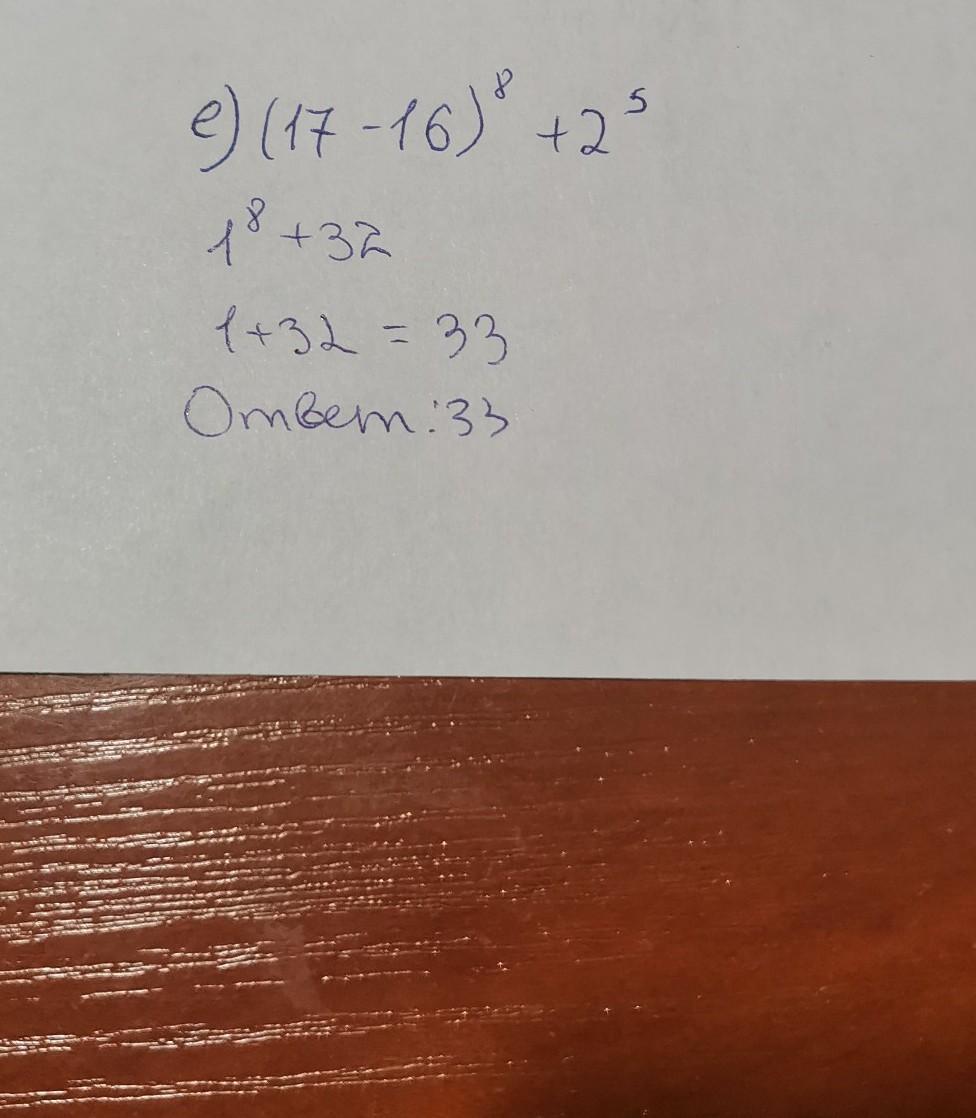 е) (17-16)⁸ +2⁵
1⁸+32
1+32 = 33
Ответ: 33